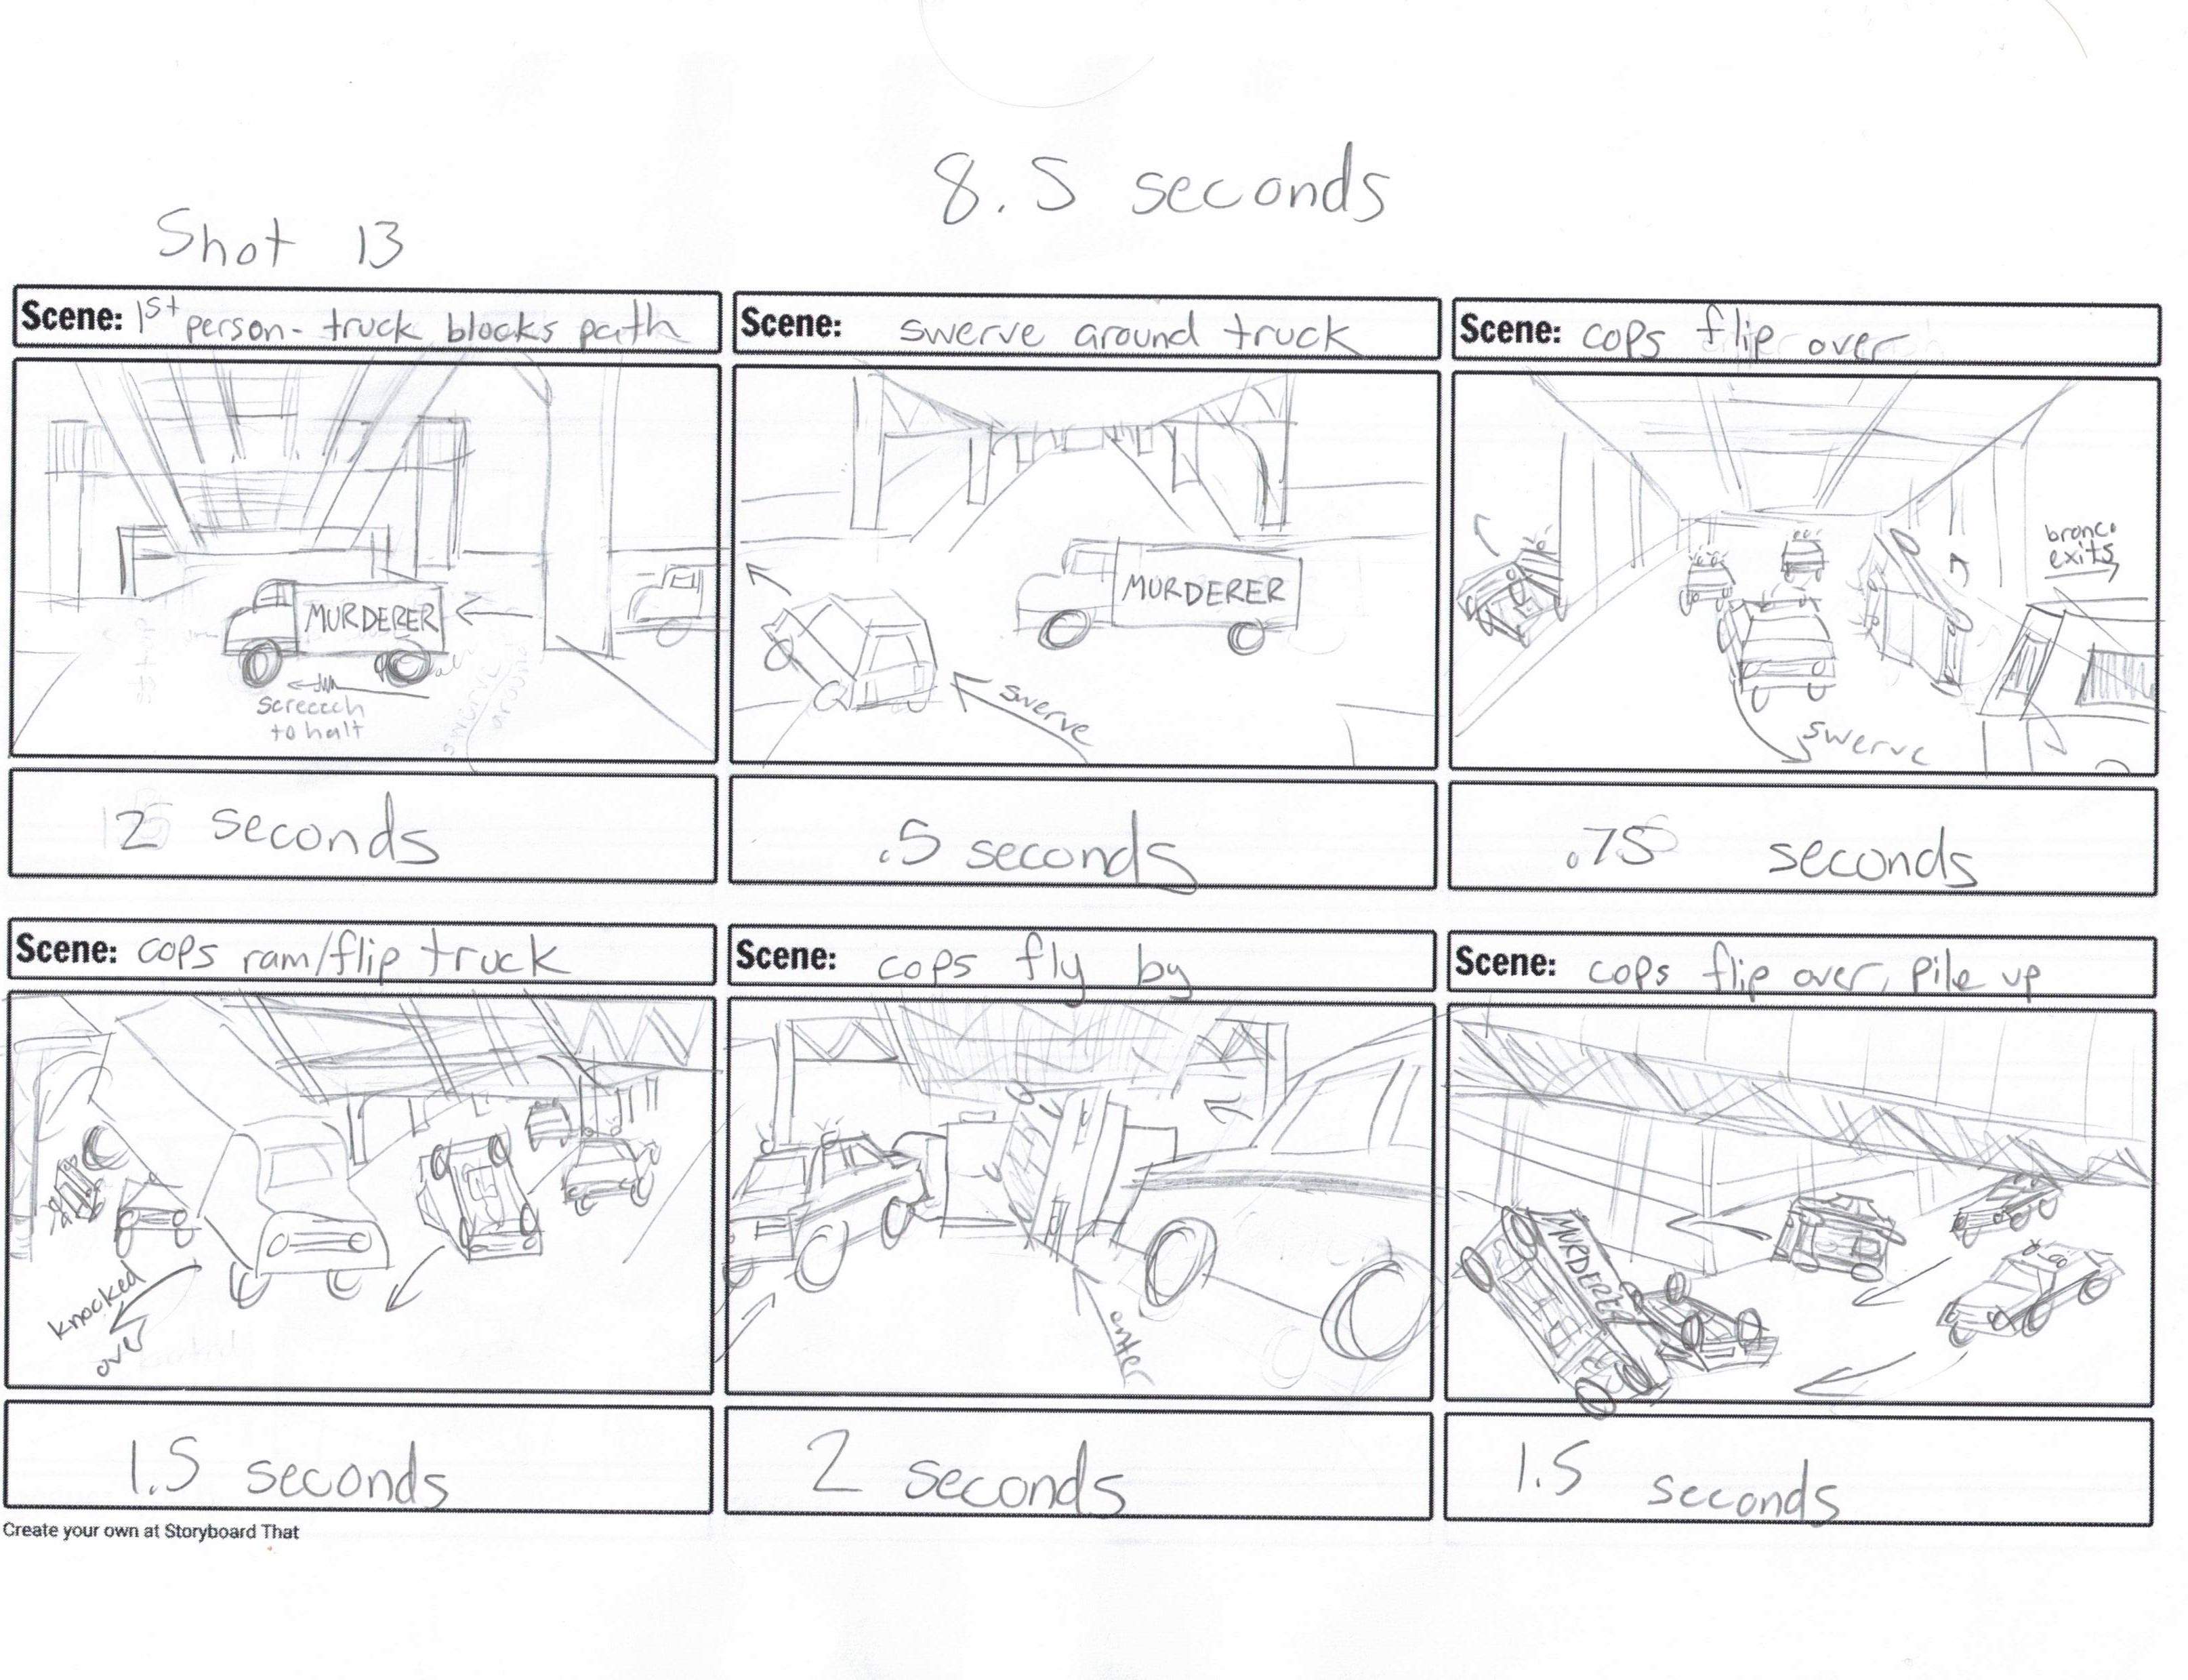 8.5 seconds
Shot 13
Scene: 1st person - truck blocks path
MURDERER
screech
to halt
swerve
around
2 seconds
Scene: swerve around truck
MURDERER
swerve
.5 seconds
Scene: cops flip over
bronco
exits
swerve
.75 seconds
Scene: cops ram/flip truck
knocked
over
1.5 seconds
Scene: cops fly by
enter
2 seconds
Scene: cops flip over, pile up
MURDERER
1.5 seconds
Create your own at Storyboard That